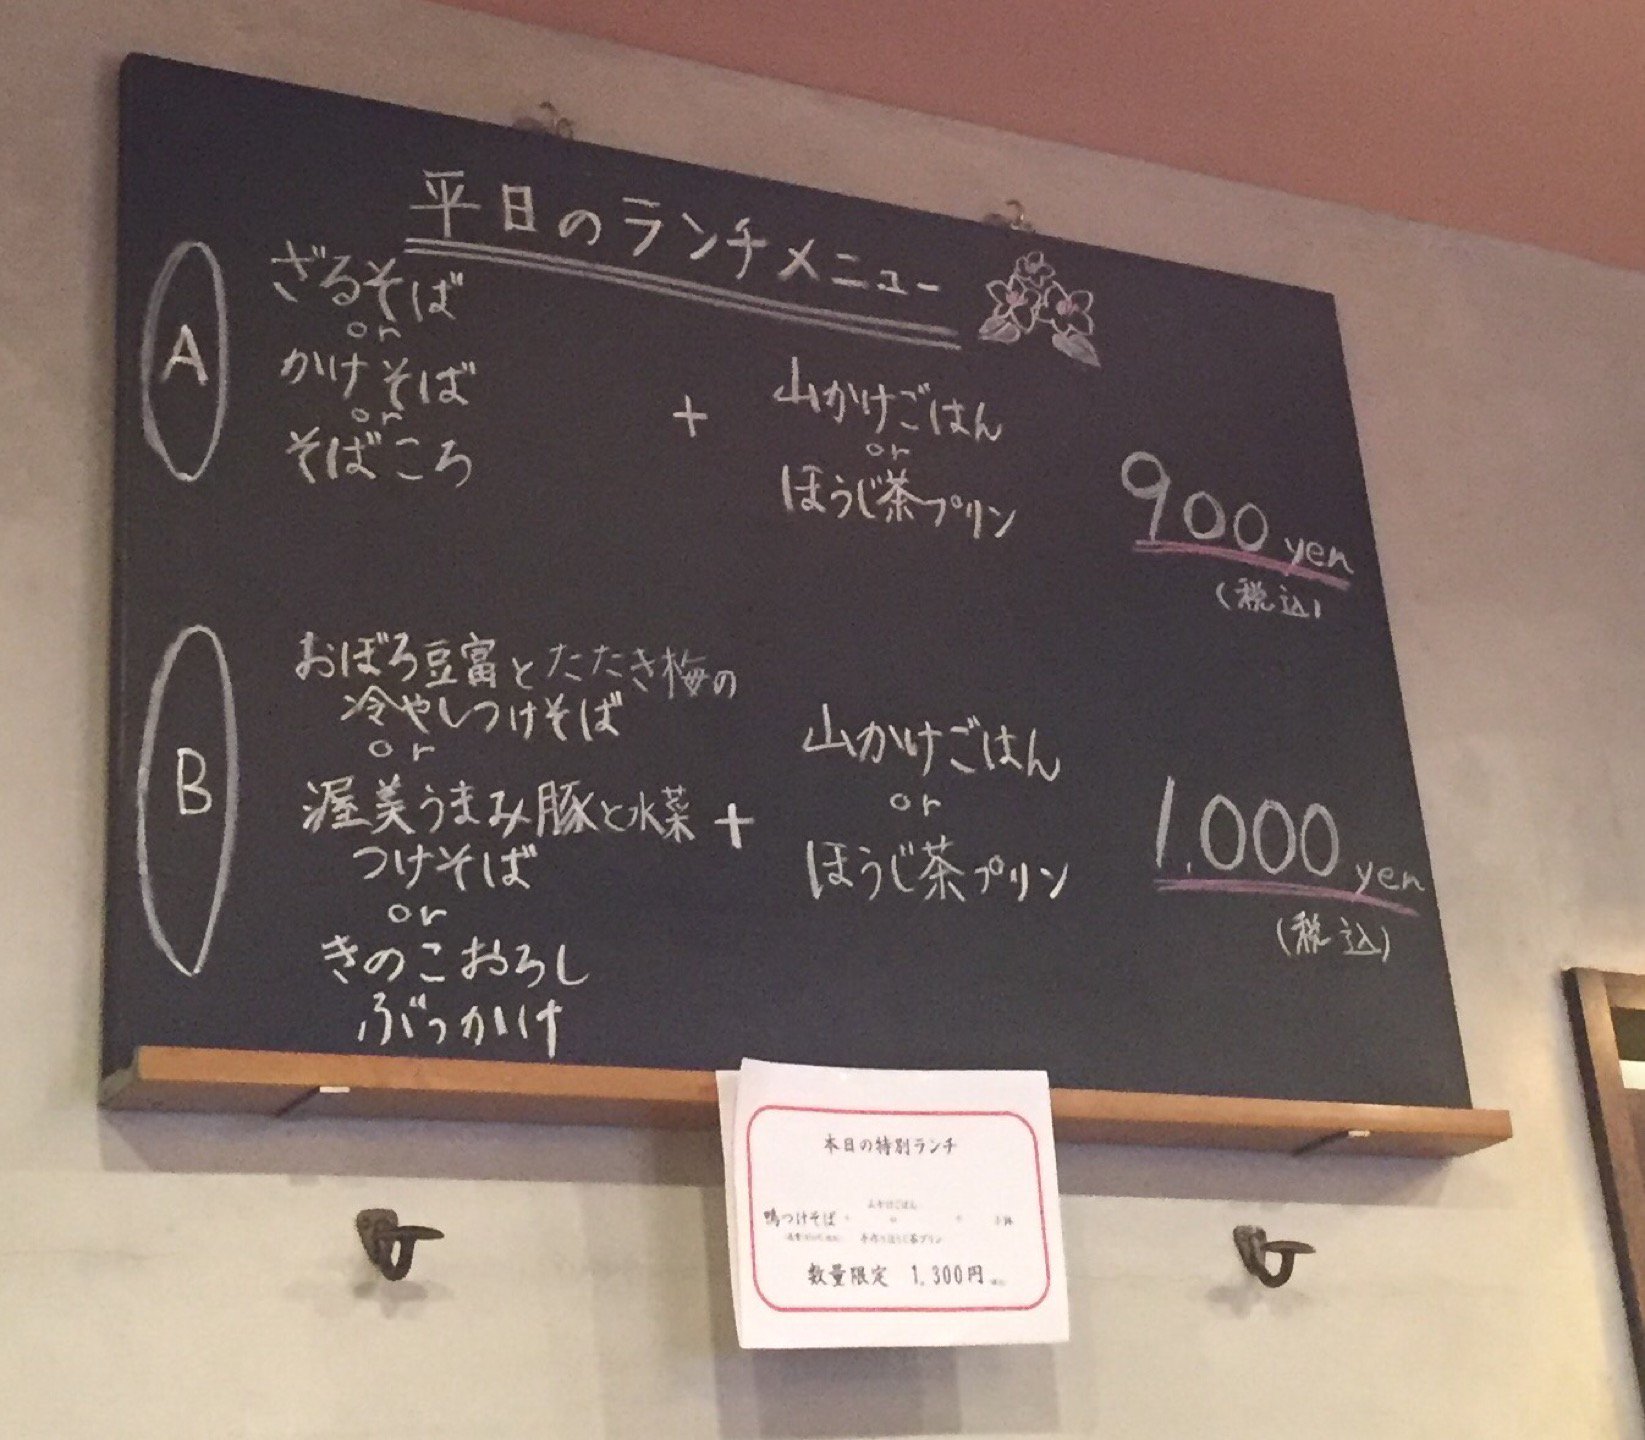 平日のランチメニュー
A
ざるそば
or
かけそば
or
そばころ
+
山かけごはん
or
ほうじ茶プリン
900yen
(税込)
B
おぼろ豆富とたたき梅の
冷やしつけそば
or
渥美うまみ豚と水菜
つけそば
or
きのこおろし
ぶっかけ
+
山かけごはん
or
ほうじ茶プリン
1.000yen
(税込)
本日の特別ランチ
鴨つけそば +
山かけごはん
or
手作りほうじ茶プリン
+ 小鉢
数量限定 1,300円